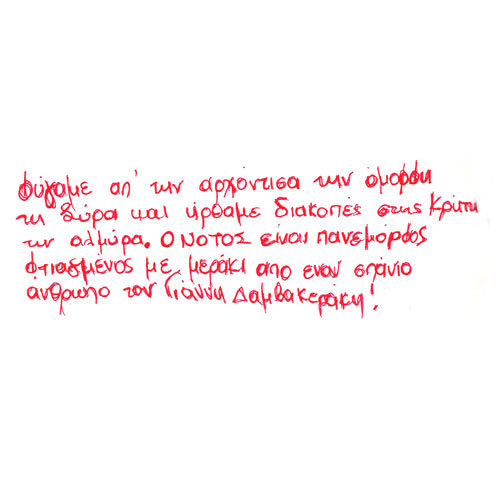 φύγαμε απ' την αρχόντισα την όμορφη
τη Σύρα και ήρθαμε διακοπές στης Κρήτη
την αλμύρα. Ο ΝΟΤΟΣ είναι πανεμόρφος
φτιαγμένος με μεράκι απο εναν σπάνιο
άνθρωπο τον Γιάννη Δαμβακεράκη!